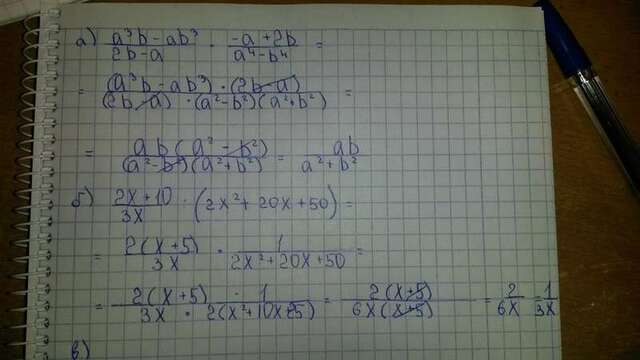 а) (a³b - ab³)/(2b - a) · (-a + 2b)/(a⁴ - b⁴) =
= ((a³b - ab³) · (2b - a))/((2b - a) · (a² - b²)(a² + b²)) =
= (ab(a² - b²))/((a² - b²)(a² + b²)) = ab/(a² + b²)
б) (2x + 10)/(3x) · (2x² + 20x + 50) =
= (2(x + 5))/(3x) · 1/(2x² + 20x + 50) =
= (2(x + 5) · 1)/(3x · 2(x² + 10x 25)) = (2(x + 5))/(6x(x + 5)) = 2/(6x) = 1/(3x)
в)